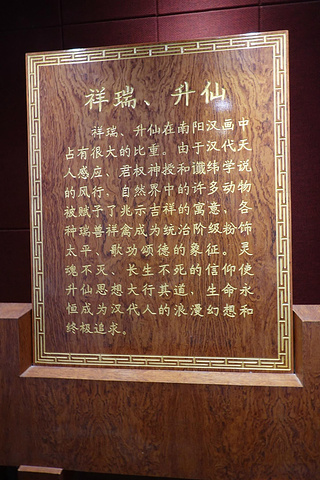 祥瑞、升仙
祥瑞、升仙在南阳汉画中
占有很大的比重。由于汉代天
人感应、君权神授和谶纬学说
的风行，自然界中的许多动物
被赋予了兆示吉祥的寓意，各
种瑞兽祥禽成为统治阶级粉饰
太平、歌功颂德的象征。灵
魂不灭、长生不死的信仰使
升仙思想大行其道，生命永
恒成为汉代人的浪漫幻想和
终极追求。